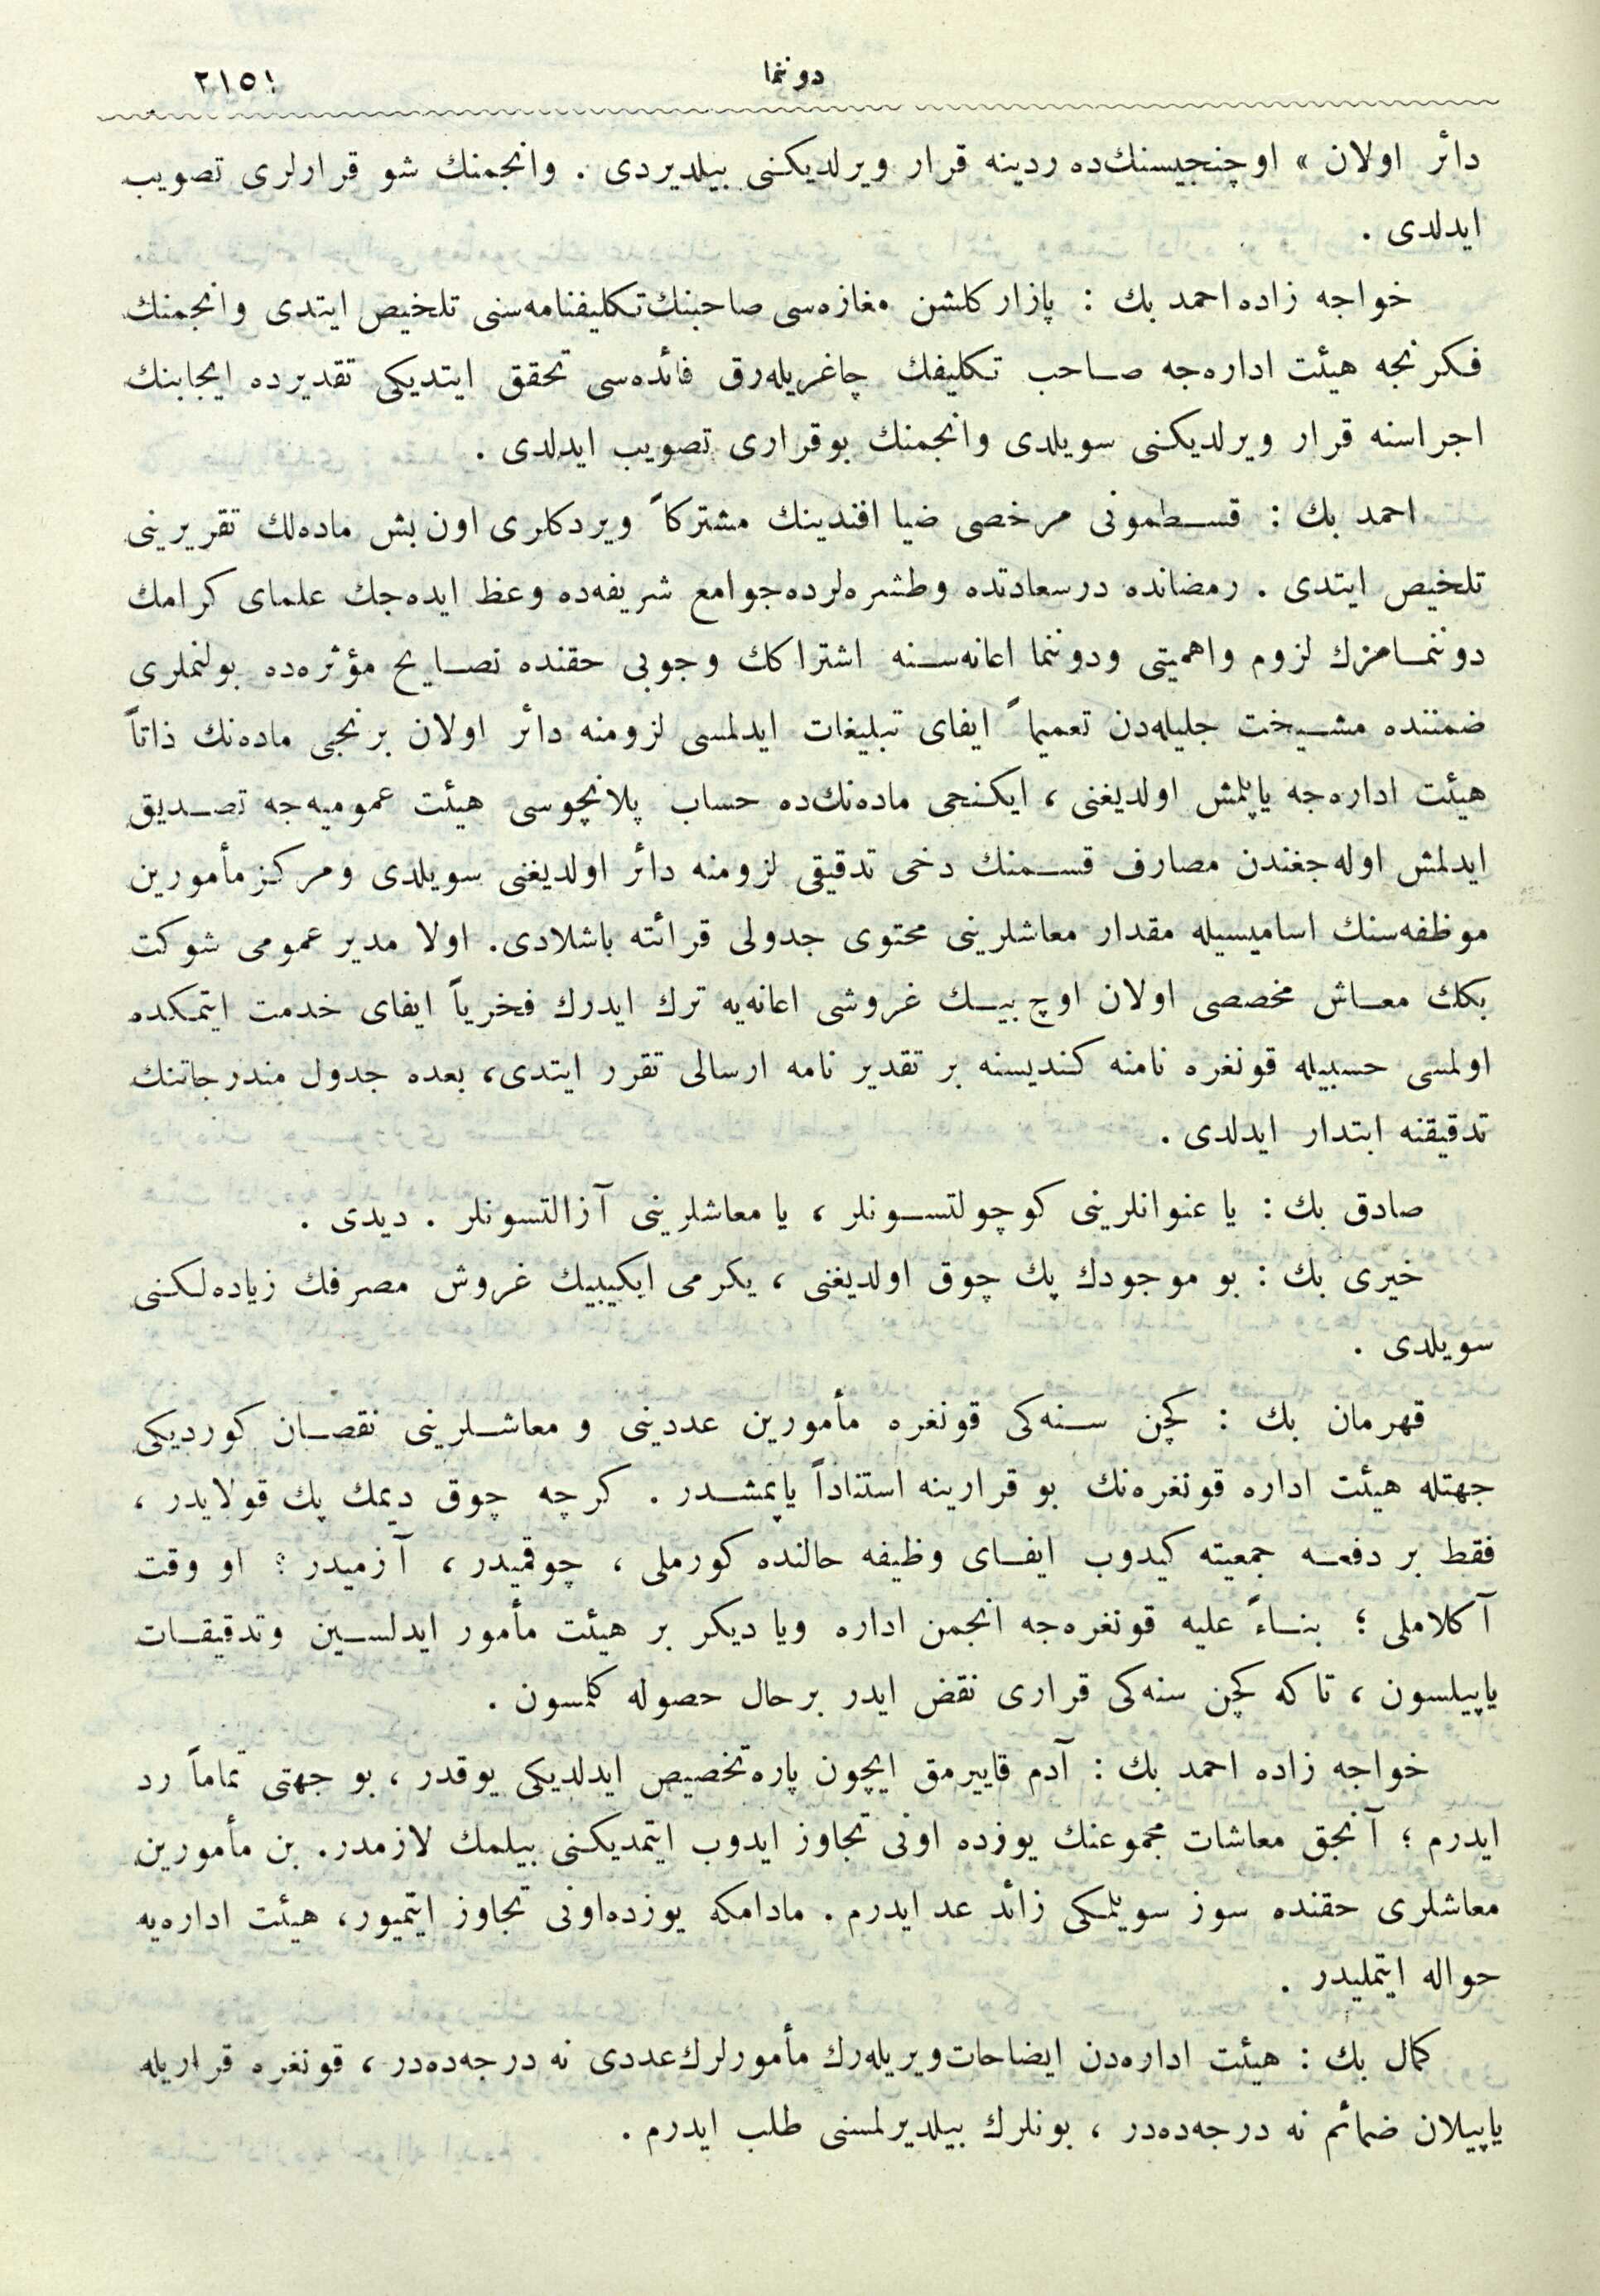 دوننما
٢١٥١
دائر اولان » اوچنجیسنك‌ده ردینه قرار ویرلدیكنی بیلدیردی . وانجمنك شو قرارلری تصویب
ایدلدی .
خواجه زاده احمد بك : پازار كلشن مغازه‌سی صاحبنك تكلیفنامه‌سنی تلخیص ایتدی وانجمنك
فكرنجه هیئت اداره‌جه صاحب تكلیفك چاغریله‌رق فائده‌سی تحقق ایتدیكی تقدیرده ایجابنك
اجراسنه قرار ویرلدیكنی سویلدی وانجمنك بوقراری تصویب ایدلدی .
احمد بك : قسطمونی مرخصی ضیا افندینك مشتركاً ویردكلری اون بش ماده‌لك تقریرینی
تلخیص ایتدی . رمضانده درسعادتده وطشره‌لرده جوامع شریفه‌ده وعظ ایده‌جك علمای كرامك
دوننمامزك لزوم واهمیتی ودوننما اعانه‌سنه اشتراكك وجوبی حقنده نصایح مؤثره‌ده بولنملری
ضمننده مشیخت جلیله‌دن تعمیماً ایفای تبلیغات ایدلمسی لزومنه دائر اولان برنجی ماده‌نك ذاتاً
هیئت اداره‌جه یاپلمش اولدیغنی ، ایكنجی ماده‌نك‌ده حساب پلانچوسی هیئت عمومیه‌جه تصدیق
ایدلمش اوله‌جغندن مصارف قسمنك دخی تدقیقی لزومنه دائر اولدیغنی سویلدی ومركز مأمورین
موظفه‌سنك اسامیسیله مقدار معاشلرینی محتوی جدولی قرائته باشلادی. اولا مدیر عمومی شوكت
بكك معاش مخصصی اولان اوچ بیك غروشی اعانه‌یه ترك ایدرك فخریاً ایفای خدمت ایتمكده
اولمسی حسبیله قونغره نامنه كندیسنه بر تقدیر نامه ارسالی تقرر ایتدی، بعده جدول مندرجاتنك
تدقیقنه ابتدار ایدلدی .
صادق بك : یا عنوانلرینی كوچولتسونلر ، یا معاشلرینی آزالتسونلر . دیدی .
خیری بك : بو موجودك پك چوق اولدیغنی ، یكرمی ایكیبیك غروش مصرفك زیاده‌لكنی
سویلدی .
قهرمان بك : كچن سنه‌كی قونغره مأمورین عددینی و معاشلرینی نقصان كوردیكی
جهتله هیئت اداره قونغره‌نك بو قرارینه استناداً یاپمشدر . كرچه چوق دیمك پك قولایدر ،
فقط بر دفعه جمعیته كیدوب ایفای وظیفه حالنده كورملی ، چوقمیدر ، آزمیدر ؟ او وقت
آكلاملی ؛ بناءً علیه قونغره‌جه انجمن اداره ویا دیكر بر هیئت مأمور ایدلسین وتدقیقات
یاپیلسون ، تا كه كچن سنه‌كی قراری نقض ایدر برحال حصوله كلمسون .
خواجه زاده احمد بك : آدم قاییرمق ایچون پاره تخصیص ایدلدیكی یوقدر ، بو جهتی تماماً رد
ایدرم ؛ آنجق معاشات مجموعنك یوزده اونی تجاوز ایدوب ایتمدیكنی بیلمك لازمدر. بن مأمورین
معاشلری حقنده سوز سویلمكی زائد عد ایدرم . مادامكه یوزده‌اونی تجاوز ایتمیور، هیئت اداره‌یه
حواله ایتملیدر .
كمال بك : هیئت اداره‌دن ایضاحات ویریله‌رك مأمورلرك عددی نه درجه‌ده‌در ، قونغره قراریله
یاپیلان ضمائم نه درجه‌ده‌در ، بونلرك بیلدیرلمسنی طلب ایدرم .